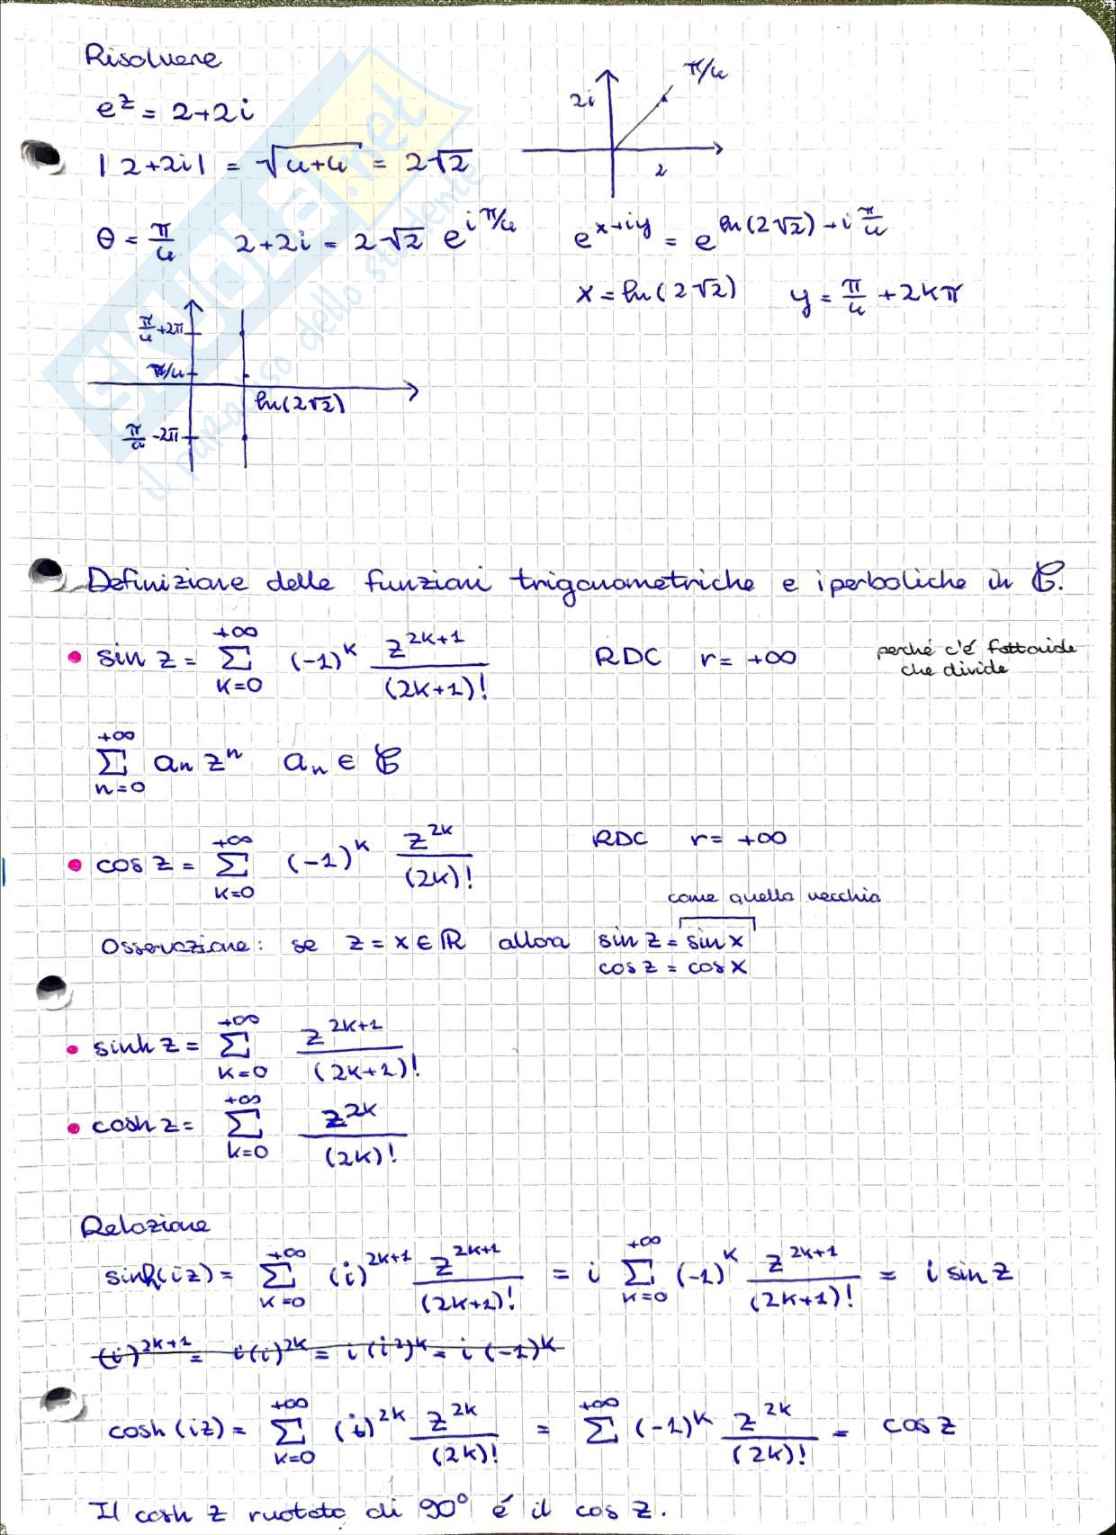 Risolvere
π/4
e^z = 2+2i
2i
|2+2i| = √(4+4) = 2√2
2
θ = π/4   2+2i = 2√2 e^(iπ/4)   e^(x+iy) = e^(ln(2√2)+iπ/4)
x = ln(2√2)   y = π/4 + 2kπ
π/4 +2π
π/4
ln(2√2)
π/4 -2π
skuola.net
il paradiso dello studente
Definizione delle funzioni trigonometriche e iperboliche in ℂ.
• sin z = Σ_(k=0)^(+∞) (-1)^k z^(2k+1)/(2k+1)!   RDC   r = +∞   perché c'é fattoriale
che divide
Σ_(n=0)^(+∞) a_n z^n   a_n ∈ ℂ
• cos z = Σ_(k=0)^(+∞) (-1)^k z^(2k)/(2k)!   RDC   r = +∞
come quella vecchia
Osservazione: se z = x ∈ ℝ allora sin z = sin x
cos z = cos x
• sinh z = Σ_(k=0)^(+∞) z^(2k+1)/(2k+1)!
• cosh z = Σ_(k=0)^(+∞) z^(2k)/(2k)!
Relazione
sinh(iz) = Σ_(k=0)^(+∞) (i)^(2k+1) z^(2k+1)/(2k+1)! = i Σ_(k=0)^(+∞) (-1)^k z^(2k+1)/(2k+1)! = i sin z
(i)^(2k+1) = i(i)^(2k) = i(i²)^k = i(-1)^k
cosh(iz) = Σ_(k=0)^(+∞) (i)^(2k) z^(2k)/(2k)! = Σ_(k=0)^(+∞) (-1)^k z^(2k)/(2k)! = cos z
Il cosh z ruotato di 90° é il cos z.